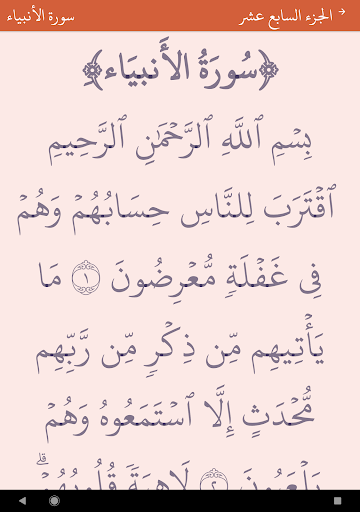 الجزء السابع عشر سورة الأنبياء
﴿سُورَةُ الأَنبيَاء﴾
بِسْمِ ٱللَّهِ ٱلرَّحْمَٰنِ ٱلرَّحِيمِ
ٱقْتَرَبَ لِلنَّاسِ حِسَابُهُمْ وَهُمْ
فِى غَفْلَةٍ مُّعْرِضُونَ ١ مَا
يَأْتِيهِم مِّن ذِكْرٍ مِّن رَّبِّهِم
مُّحْدَثٍ إِلَّا ٱسْتَمَعُوهُ وَهُمْ
يَلْعَبُونَ ٢ لَاهِيَةً قُلُوبُهُمْ ۗ